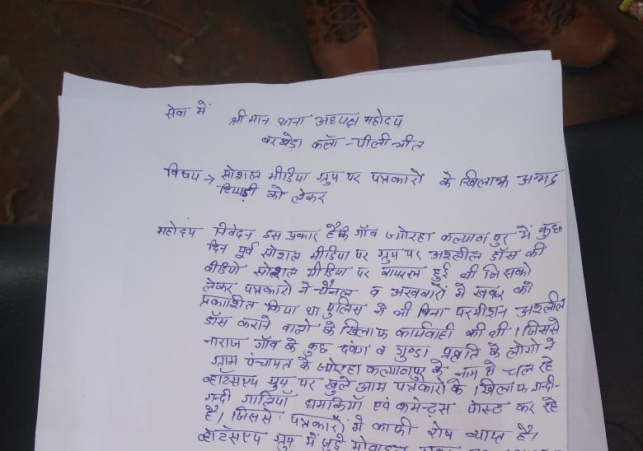 सेवा में
श्री मान थाना अध्यक्ष महोदय
बरखेडा कलॉ - पीलीभीत
विषय → सोशल मीडिया ग्रुप पर पत्रकारो के खिलाफ अभद्र
टिप्पड़ी को लेकर
महोदय निवेदन इस प्रकार है कि गॉव ज्योरहा कल्यानपुर में कुछ
दिन पूर्व सोशल मीडिया पर ग्रुप पर अश्लील डॉस की
वीडियो सोशल मीडिया पर वायरल हुई थी जिसको
लेकर पत्रकारो ने चैनल व अखबारों में खबर को
प्रकाशित किया था पुलिस ने भी बिना परमीशन अश्लील
डॉस कराने वालो के खिलाफ कार्यवाही की थी। जिससे
नाराज गॉव के कुछ दबंग व गुण्डा प्रव्रति के लोगो ने
ग्राम पंचायत के ज्योरहा कल्यानपुर के नाम से चल रहे
व्हाटसएप ग्रुप पर खुले आम पत्रकारो के खिलाफ गन्दी-
गन्दी गालियॉ धमकियॉ एवं कमेन्टस पोस्ट कर रहे
है। जिससे पत्रकारो में काफी रोष व्याप्त है।
व्हाटसएप ग्रुप में जुडे मोबाइल